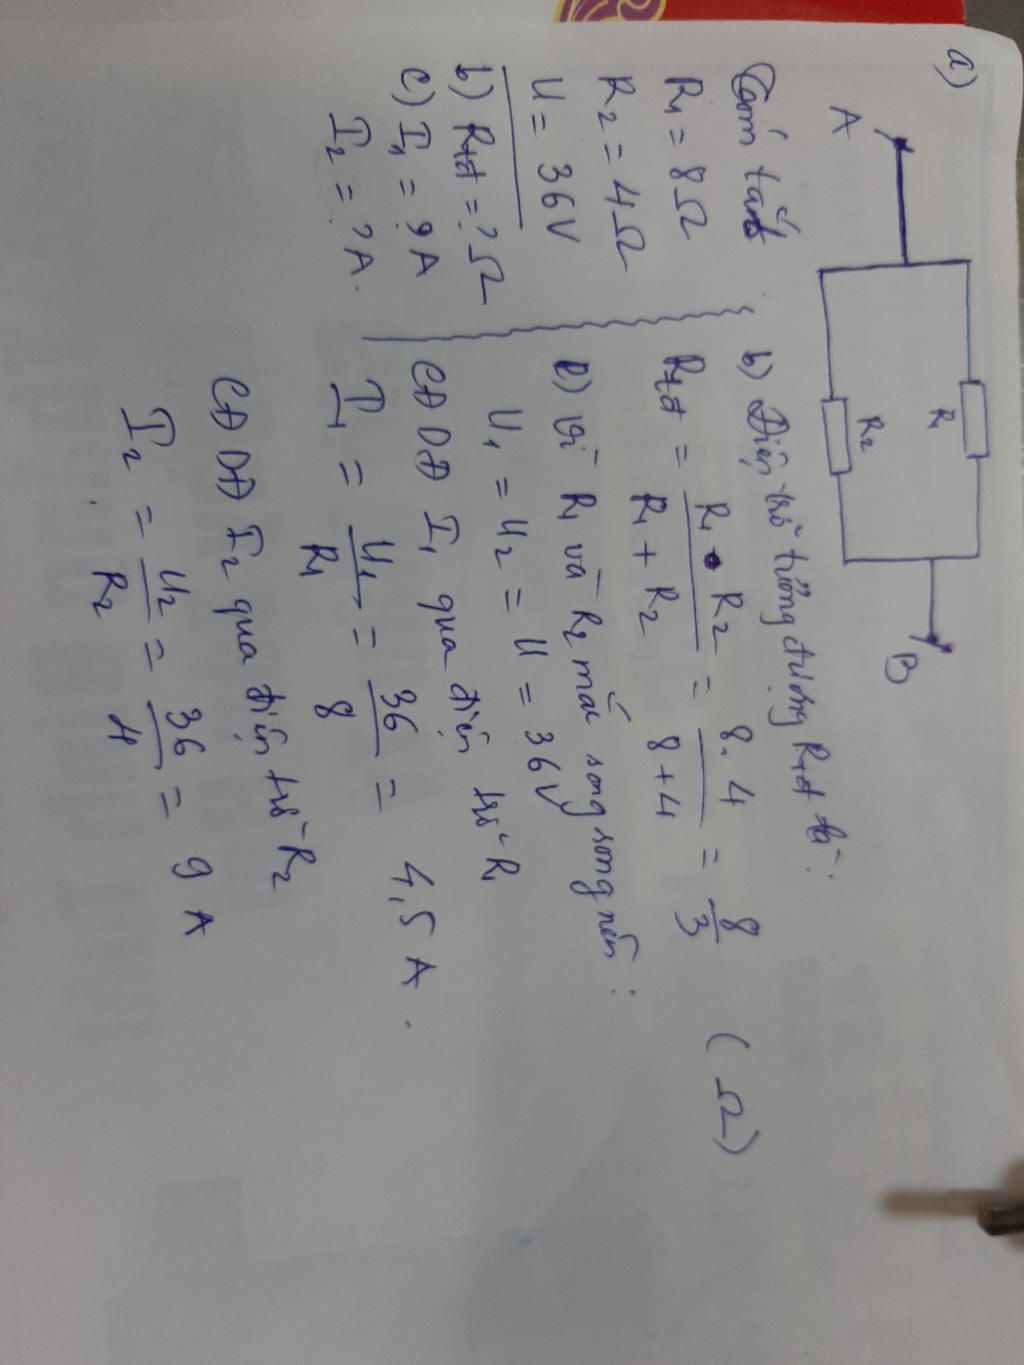 a)
A
R₁
R₂
B
Tóm tắt
R₁ = 8Ω
R₂ = 4Ω
U = 36V
b) Rtđ = ? Ω
c) I₁ = ? A
I₂ = ? A.
b) Điện trở tương đương Rtđ là:
Rtđ = R₁ . R₂ / R₁ + R₂ = 8.4 / 8+4 = 8/3 (Ω)
c) Vì R₁ và R₂ mắc song song nên:
U₁ = U₂ = U = 36V
CĐDĐ I₁ qua điện trở R₁
I₁ = U₁/R₁ = 36/8 = 4,5 A.
CĐDĐ I₂ qua điện trở R₂
I₂ = U₂/R₂ = 36/4 = 9 A